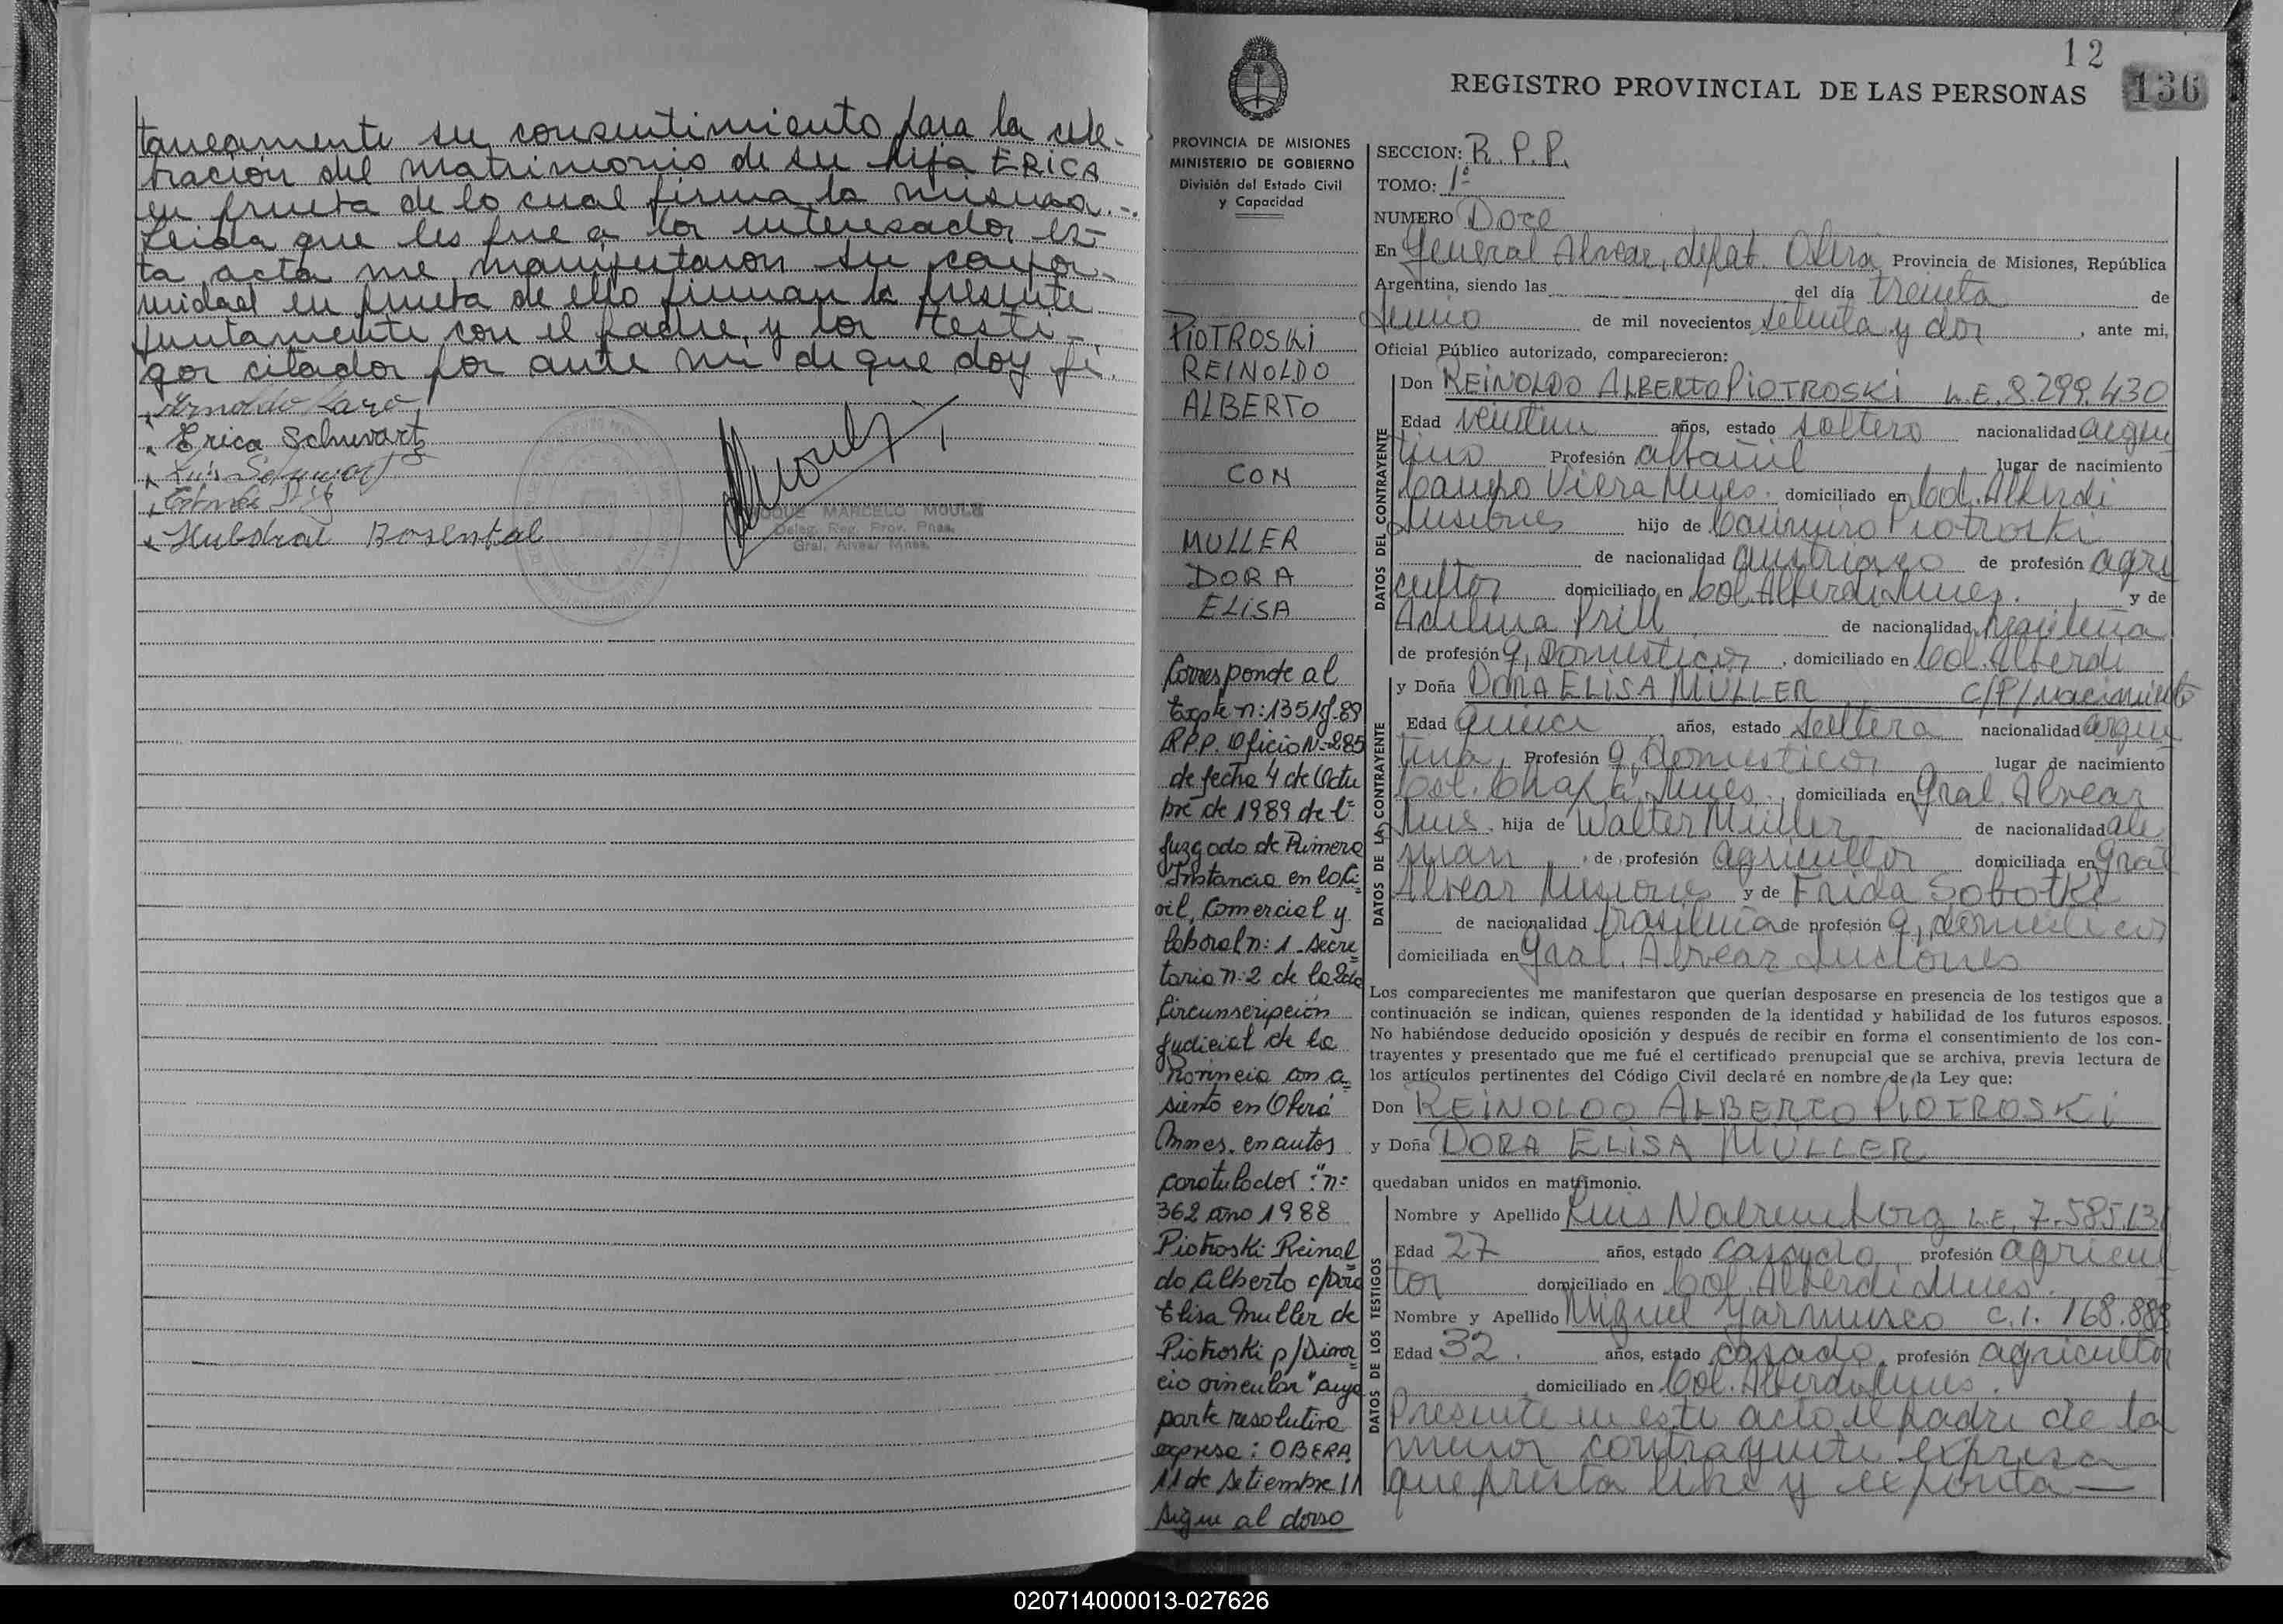 taneamente su consentimiento para la cele-
bración del matrimonio de su hija ERICA
en prueba de lo cual firma la misma.-.
Leida que les fue a los interesados es-
ta acta me manifestaron su confor-
midad en prueba de ello firman la presente
juntamente con el padre y los testi-
gos citados por ante mi de que doy fé.
Arnoldo
Erica Schuvartz
Luis
Hubdral Rosental
ROQUE MARCELO MOULE
Deleg. Reg. Prov. Pnas.
Gral. Alvear Mnes.
12
136
REGISTRO PROVINCIAL DE LAS PERSONAS
PROVINCIA DE MISIONES
MINISTERIO DE GOBIERNO
División del Estado Civil
y Capacidad
PIOTROSKI
REINOLDO
ALBERTO
CON
MULLER
DORA
ELISA
Corresponde al
Expte n:1351 -89
RPP. Oficio N-285
de fecha 4 de Octu
bre de 1989 del
Juzgado de Primera
Instancia en lo Ci
vil, Comercial y
Laboral n: 1 Secre
taria n:2 de la 2da
Circunscripción
Judicial de la
Provincia con a
siento en Oberá
Mnes. en autos
caratulados: "n:
362 año 1988
Piotroski Reinal
do Alberto c/Dora
Elisa Muller de
Piotroski p/Divor
cio vincular" cuya
parte resolutiva
expresa: OBERA
11 de Setiembre
Sigue al dorso
SECCION: R.P.P.
TOMO: 1º
NUMERO Doce
En General Alvear, depat. Oberá Provincia de Misiones, República
Argentina, siendo las del día treinta de
Junio de mil novecientos setenta y dos, ante mi,
Oficial Público autorizado, comparecieron:
DATOS DEL CONTRAYENTE
Don REINOLDO ALBERTO PIOTROSKI L.E. 8.299.430
Edad veintiun años, estado soltero nacionalidad argen
tino Profesión albañil lugar de nacimiento
Campo Viera Mnes. domiciliado en Col. Alberdi
Misiones hijo de Casimiro Piotroski
de nacionalidad austriaco de profesión agri
cultor domiciliado en Col. Alberdi Mnes. y de
Adelina Prill de nacionalidad Argentina
de profesión q. domesticos, domiciliado en Col. Alberdi
DATOS DE LA CONTRAYENTE
y Doña DORA ELISA MÜLLER C/P/nacimiento
Edad quince años, estado soltera nacionalidad argen
tina, Profesión q. domesticos lugar de nacimiento
Col. Chapá Mnes. domiciliada en Gral. Alvear
Mnes. hija de Walter Müller de nacionalidad ale
man de profesión agricultor domiciliada en Gral
Alvear Misiones y de Frida Sobotke
de nacionalidad brasileña de profesión q. domesticos
domiciliada en Gral. Alvear Misiones
Los comparecientes me manifestaron que querían desposarse en presencia de los testigos que a
continuación se indican, quienes responden de la identidad y habilidad de los futuros esposos.
No habiéndose deducido oposición y después de recibir en forma el consentimiento de los con-
trayentes y presentado que me fué el certificado prenupcial que se archiva, previa lectura de
los artículos pertinentes del Código Civil declaré en nombre de la Ley que:
Don REINOLDO ALBERTO PIOTROSKI
y Doña DORA ELISA MÜLLER
quedaban unidos en matrimonio.
DATOS DE LOS TESTIGOS
Nombre y Apellido Luis L.E. 7.585.13
Edad 27 años, estado casado profesión agricul
tor domiciliado en Col. Alberdi Mnes.
Nombre y Apellido Miguel C.I. 168.888
Edad 32. años, estado casado, profesión agricultor
domiciliado en Col. Alberdi Mnes.
Presente en este acto el padre de la
menor contrayente expresa
que presta libre y exponta—
020714000013-027626